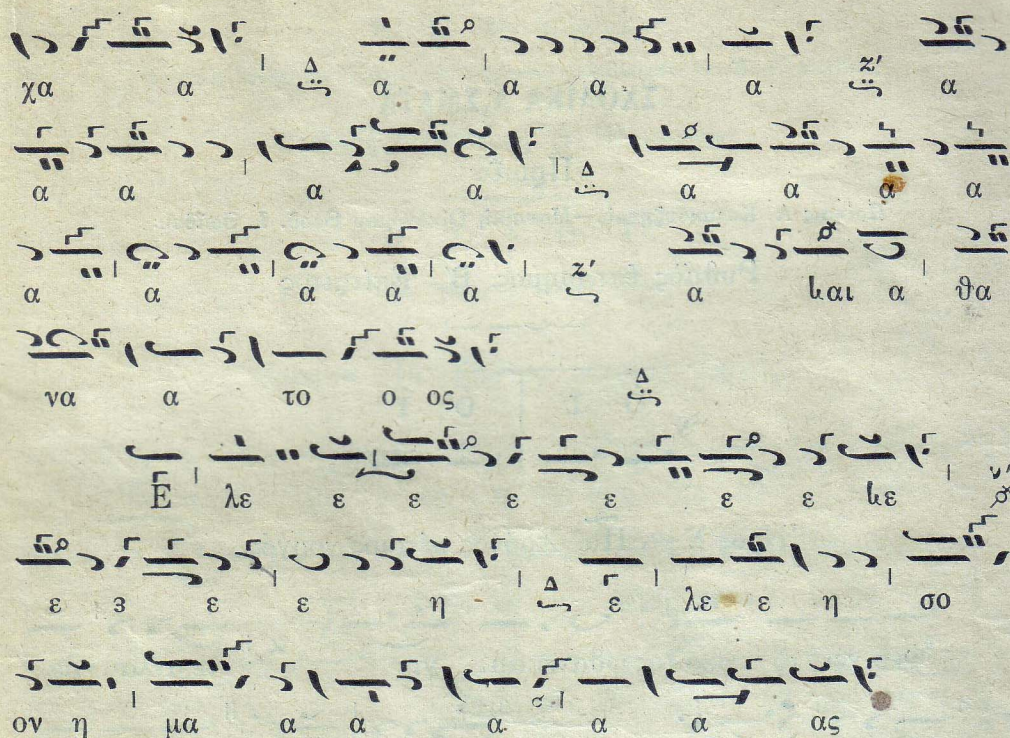 χα α Δ α α α α z' α
α α α α Δ α α α α
α α α α α z' α και α θα
να α το ο ος Δ
Ε λε ε ε ε ε ε ε κε ν'
ε ε ε η Δ ε λε ε η σο
ον η μα α α α α α ας